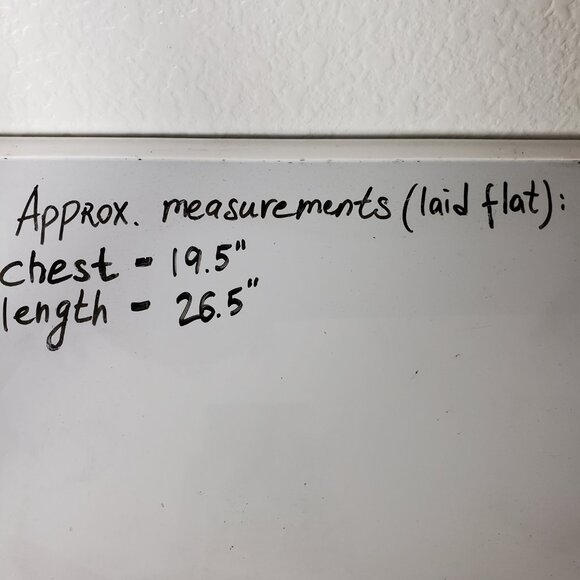 Approx. measurements (laid flat):
chest - 19.5"
length - 26.5"